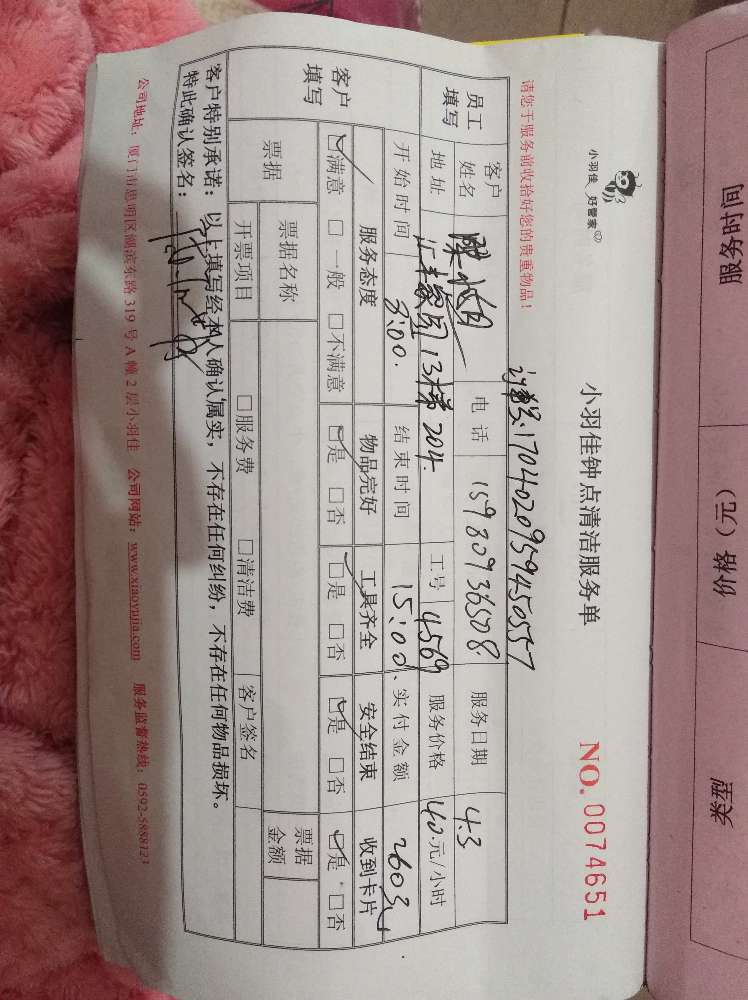 小羽佳 好管家
小羽佳钟点清洁服务单
NO. 0074651
请您于服务前收拾好您的贵重物品！
1704020959450557
员工填写
客户姓名
电话 15980936508
服务日期 4.3
地址 13梯204.
工号 4569
服务价格 40.元/小时
开始时间 3:00.
结束时间 15:00.
实付金额 260元
客户填写
服务态度 物品完好 工具齐全 安全结束 收到卡片
☑满意 □一般 □不满意 ☑是 □否 ☑是 □否 ☑是 □否 ☑是 □否
票据
票据名称
票据金额
开票项目 □服务费 □清洁费 客户签名
客户特别承诺：以上填写经本人确认属实，不存在任何纠纷，不存在任何物品损坏。
特此确认签名：
公司地址：厦门市思明区湖滨东路319号A幢2层小羽佳 公司网站：www.xiaoyujia.com 服务监督热线：0592-5888123
类型 价格（元） 服务时间